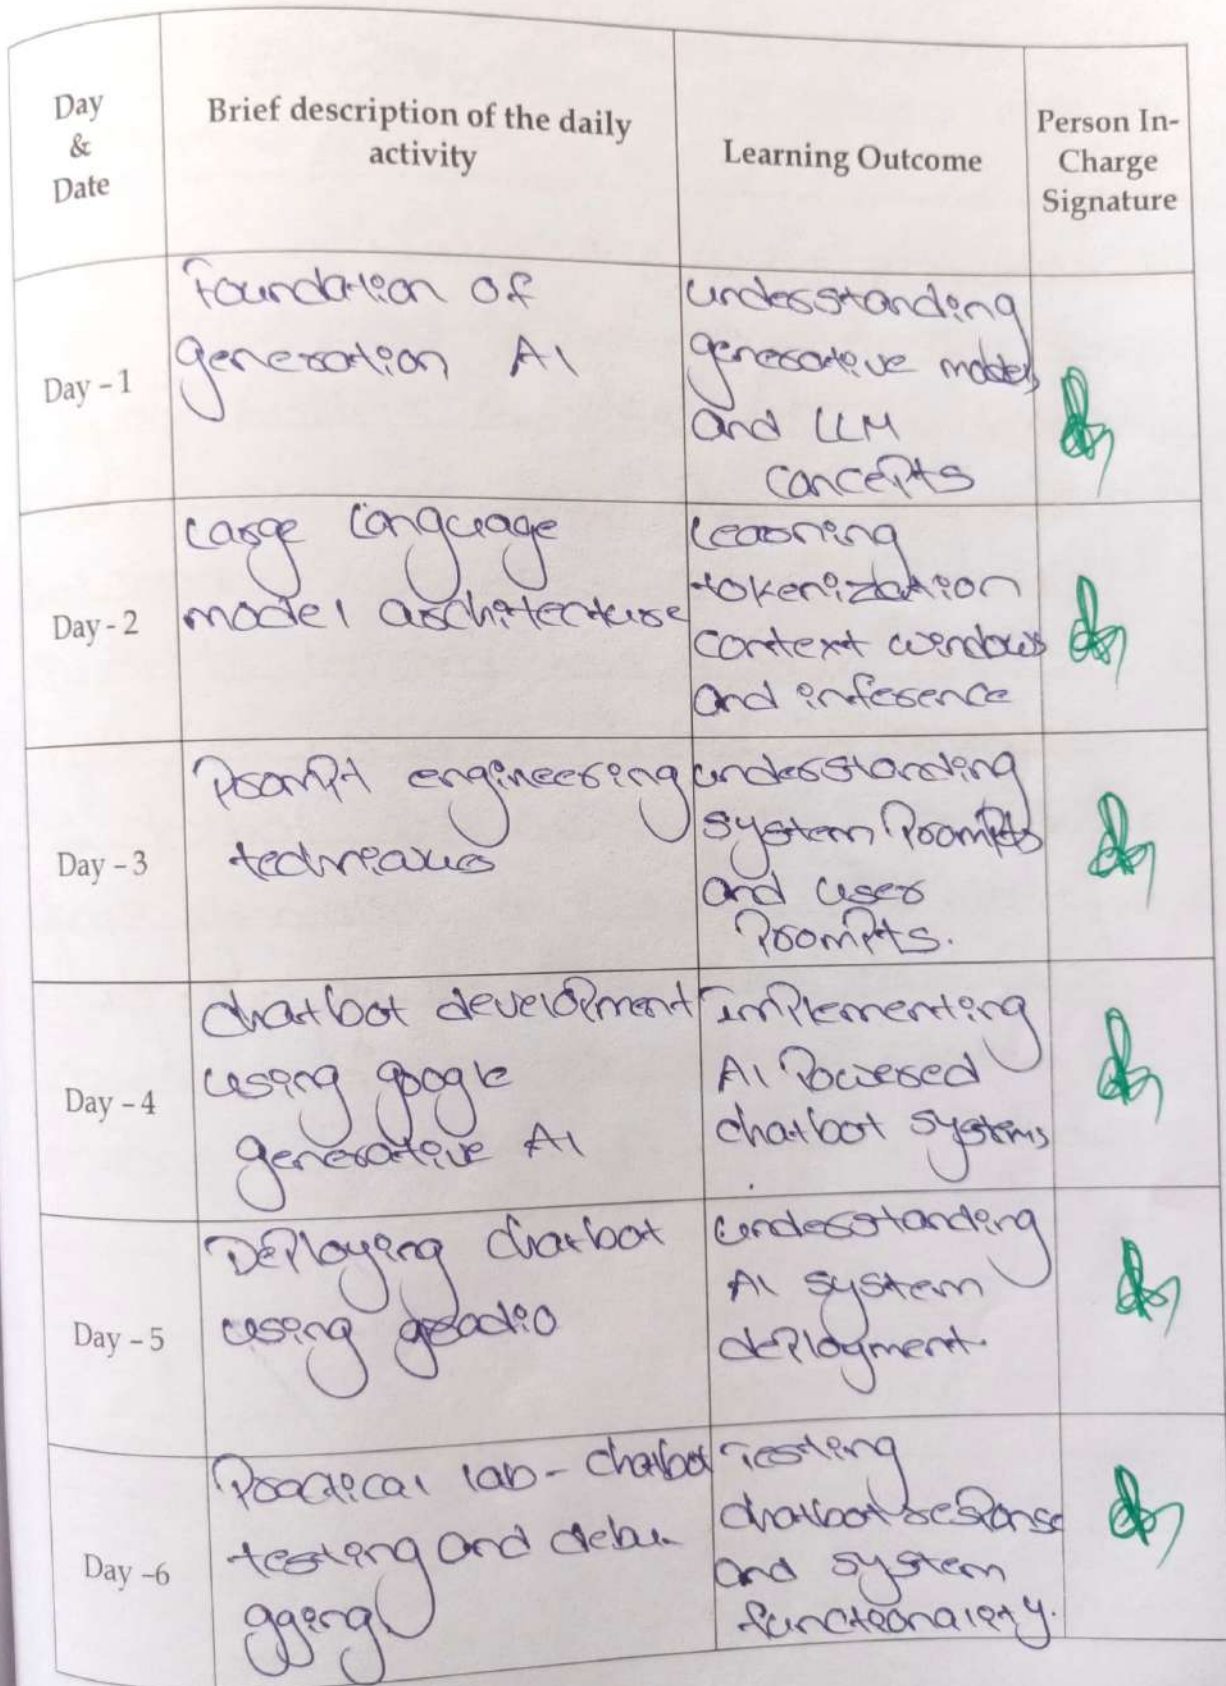 Day
&
Date
Brief description of the daily
activity
Learning Outcome
Person In-
Charge
Signature
Day - 1
Foundation of
generation AI
understanding
generative models
and LLM
concepts
Day - 2
Large language
model architecture
Learning
tokenization
context windows
and inference
Day - 3
Prompt engineering
techniques
understanding
system Prompts
and user
Prompts.
Day - 4
chatbot development
using google
generative AI
Implementing
AI Powered
chatbot systems
Day - 5
Deploying chatbot
using gradio
understanding
AI system
deployment.
Day -6
Practical lab - chatbot
testing and debu
gging
Testing
chatbot response
and system
functionality.